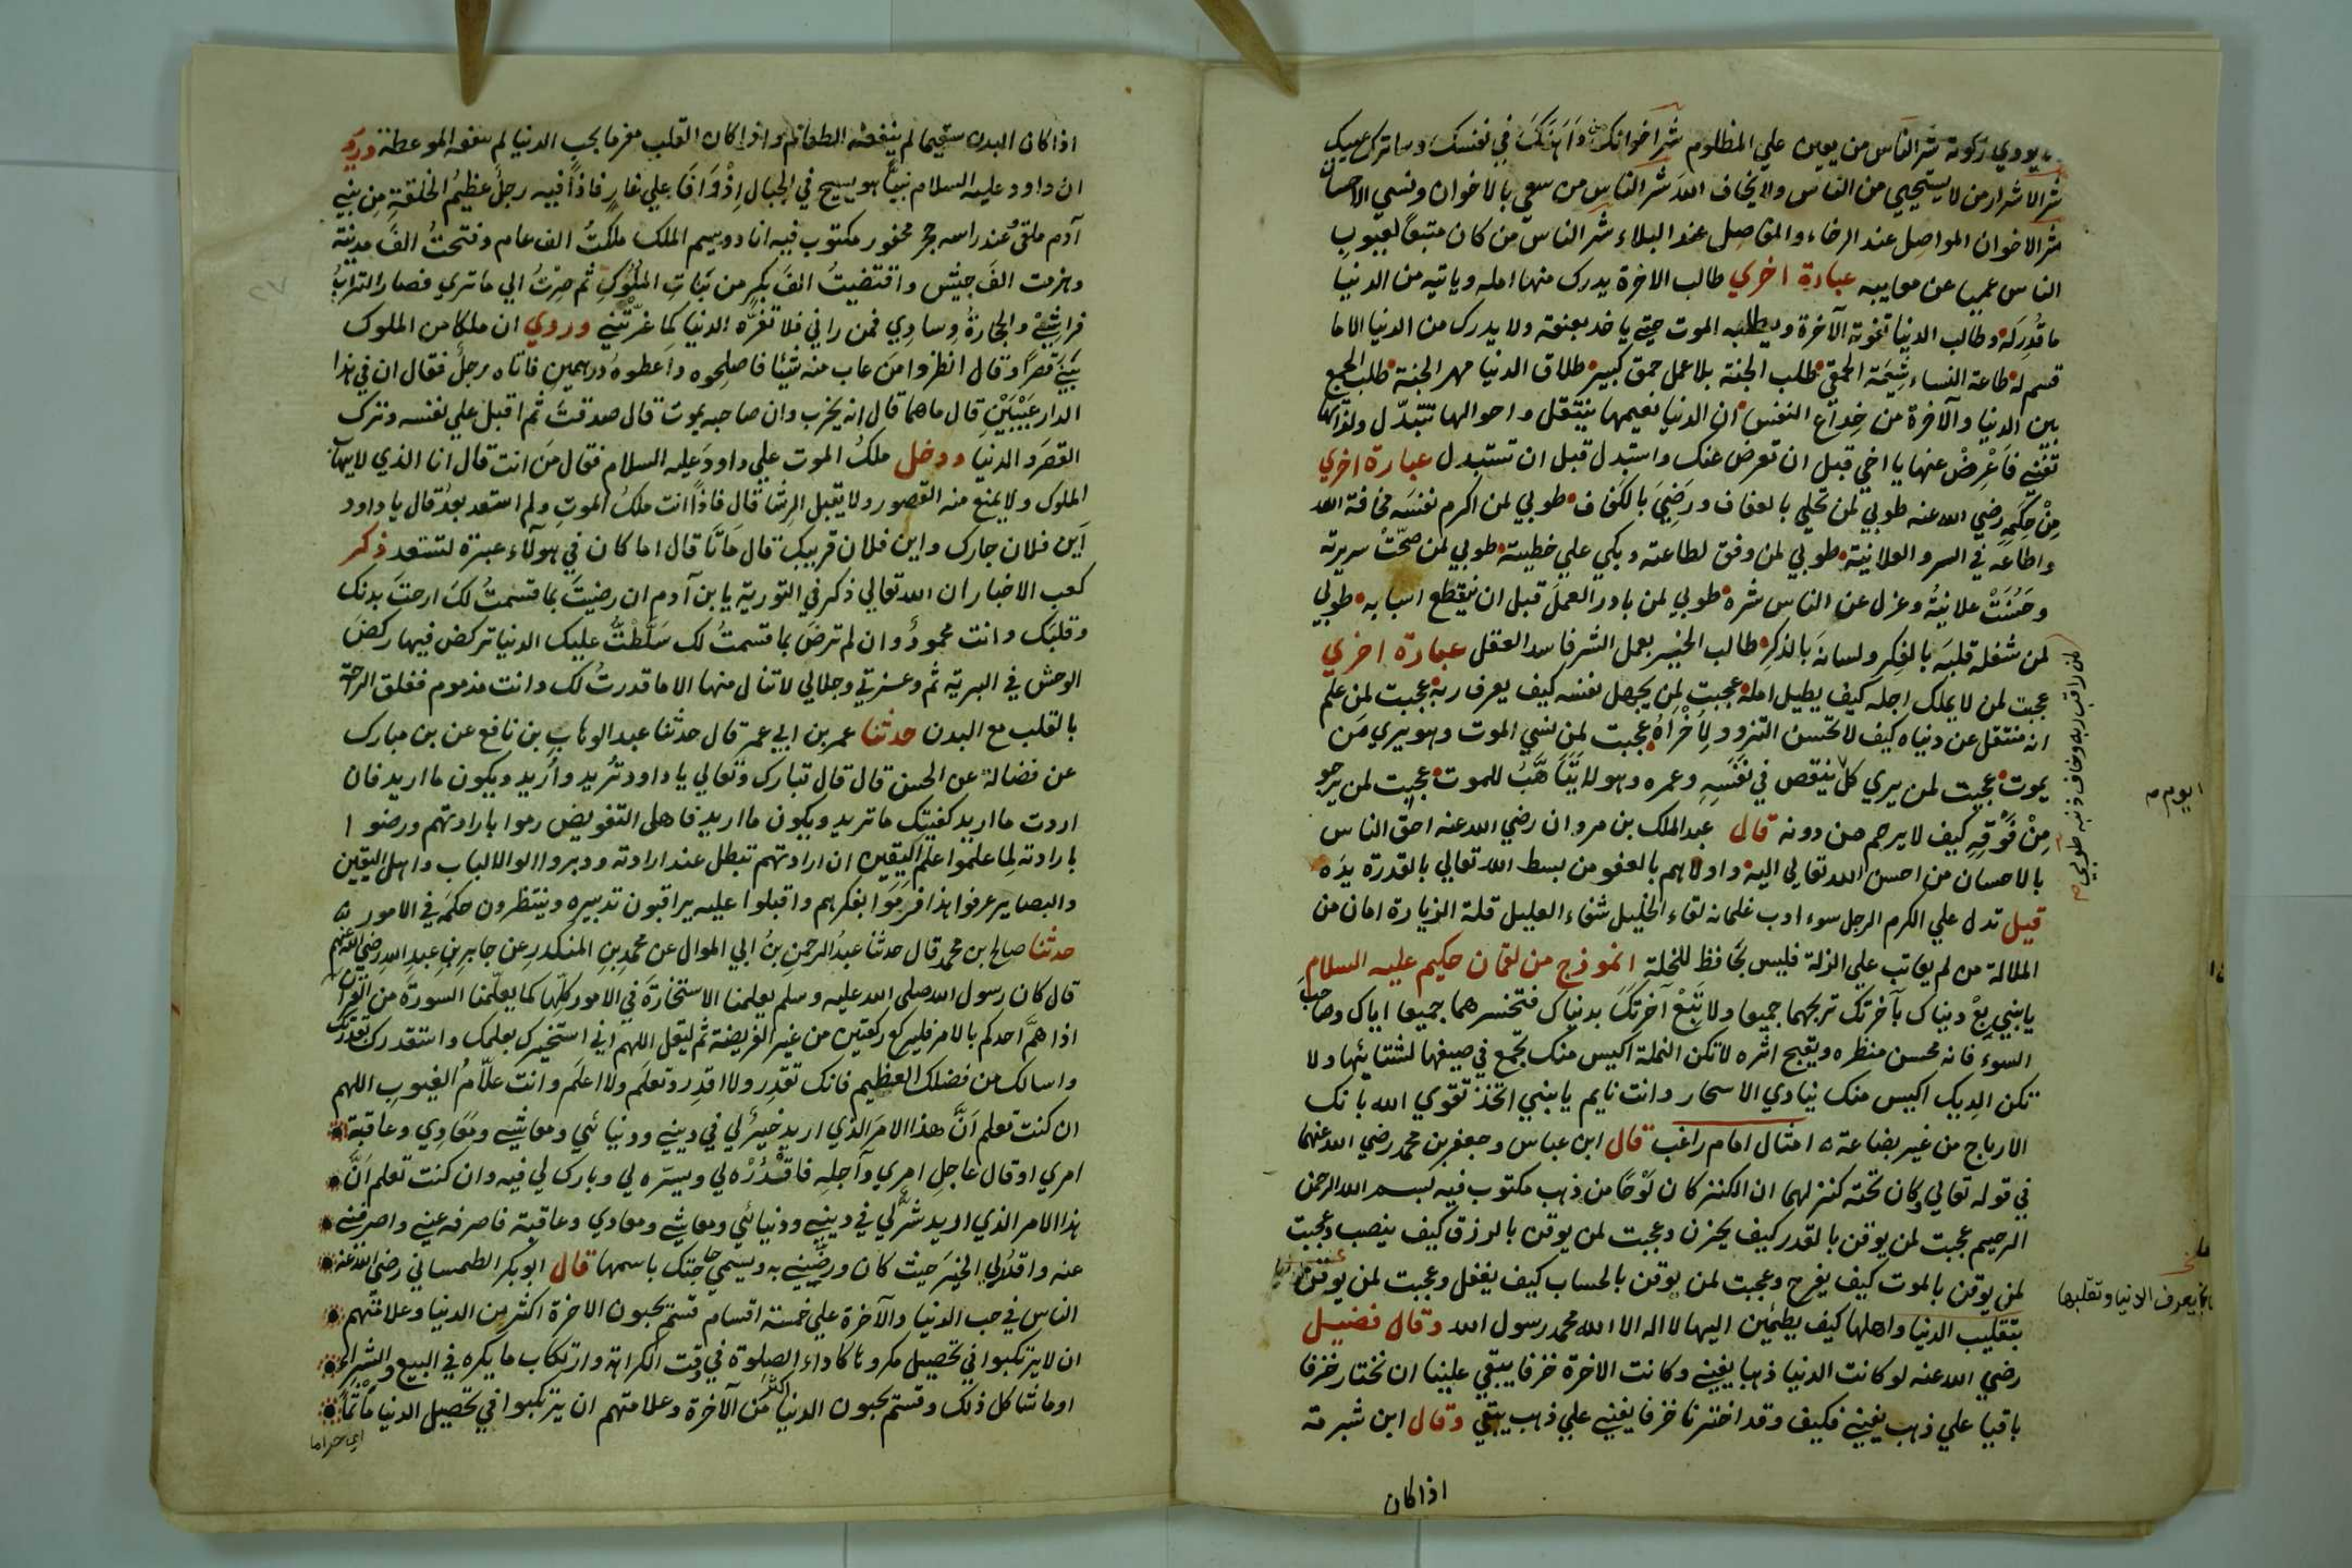 يودي زكوته شر الناس من يعين علي المظلوم شر اخوانك من داهنك في نفسك وساترك عيبك
شر الاشرار من لا يستحيي من الناس ولا يخاف الله شر الناس من سعي بالاخوان ونسي الاحسان
شر الاخوان المواصل عند الرخاء والمفاصل عند البلاء شر الناس من كان متبعًا لعيوب
الناس عميا عن معايبه عبارة اخري طالب الاخرة يدرك منها امله وياتيه من الدنيا
ما قُدِرَ له وطالب الدنيا تفوته الآخرة ويطلبه الموت حتي ياخذ بعنقه ولا يدرك من الدنيا الا ما
قسم له طاعة النساء شِيَمة الحمقي طلب الجنة بلا عمل حمق كبير طلاق الدنيا مهر الجنة طلب الجمع
بين الدنيا والآخرة من خداع النفس ان الدنيا نعيمها ينتقل واحوالها تتبدّل ولذاتها
تفني فَاَعْرِضْ عنها يا اخي قبل ان تعرض عنك واستبدل قبل ان تستبدل عبارة اخري
مِنْ حِكَمِه رضي الله عنه طوبي لمن تحلي بالعفاف ورَضِيَ بالكفاف طوبي لمن اكرم نفسَه مخافة الله
واطاعَه في السر والعلانية طوبي لمن وفق لطاعته وبكي علي خطيئة طوبي لمن صحّتْ سريرته
وحَسُنَتْ علانيتُه وعزل عن الناس شره طوبي لمن بادر العملَ قبل ان ينقطع اسبابه طوبي
لمن شغله قلبَه بالفِكر ولسانَه بالذكر طالب الخير بعمل الشر فاسد العقل عبارة اخري
عجبت لمن لا يملك اجله كيف يطيل امله عجبت لمن يجهل نفسه كيف يعرف ربه عجبت لمن علم
انه منتقل عن دنياه كيف لا تحسن التزود لِاُخْراهُ عجبت لمن نسي الموت وهو يري مَن
يموت عجبت لمن يري كل ينقص في نَفَسِه وعمره وهو لا يَتَأهَّبُ للموت عجبت لمن يرجو
مِنْ فَوْقِه كيف لا يرحم من دونه قال عبد الملك بن مروان رضي الله عنه احق الناس
بالاحسان من احسن الله تعالي اليه واولاهم بالعفو من بسط الله تعالي بالقدرة يدَه
قيل تدل علي الكرم الرجل سوء ادب غلمانه لقاء الخليل شفاء العليل قلة الزيارة امان من
الملالة من لم يعاتب علي الزلة فليس بحافظ للخلة انموذج من لقمان حكيم عليه السلام
يا بني بِعْ دنياك بآخرتك تربحهما جميعا ولا تَبِعْ آخرتك بدنياك فتخسرهما جميعا اياك وصاحبَ
السوء فانه محسن منظره ويقبح اثره لا تكن النملة اكيس منك تجمع في صيفها لشتايئها ولا
تكن الديك اكيس منك ينادي الاسحار وانت نايم يا بني اتخذ تقوي الله يأتك
الارباح من غير بضاعة امتثال امام راغب قال ابن عباس وجعفر بن محمد رضي الله عنهما
في قوله تعالي وكان تحته كنز لهما ان الكنز كان لَوْحًا من ذهب مكتوب فيه بسم الله الرحمن
الرحيم عجبت لمن يوقن بالقدر كيف يحزن وعجبت لمن يوقن بالرزق كيف ينصب وعجبت
لمن يوقن بالموت كيف يفرح وعجبت لمن يوقن بالحساب كيف يغفل وعجبت لمن يوقن
بتقليب الدنيا واهلها كيف يطمئن اليها لا اله الا الله محمد رسول الله وقال فضيل
رضي الله عنه لو كانت الدنيا ذهبا يفني وكانت الاخرة خزفا يبقي علينا ان نختار خزفا
باقيا علي ذهب يفني فكيف وقد اخترنا خزفا يفني علي ذهب يبقي وقال ابن شبرمة
لمن راقب ربه وخاف ذنبه طوبي
يوم
يعرف الدنيا وتقلبها
اذا كان
اذا كان البدن سقيما لم ينفعه الطعام واذا كان القلب مغرما بحب الدنيا لم ينفعه الموعظة وروي
ان داود عليه السلام بينا هو يسيح في الجبال اِذْ وَافَا علي غارٍ فاذًا فيه رجلٌ عظيمُ الخلقةِ من بني
آدم ملقيٌ عند راسه حجر محفور مكتوب فيه انا دوسيم الملك ملكتُ الف عام وفتحتُ الفَ مدينة
وهزمت الفَ جيش وافتضيتُ الفَ بكرٍ من بناتِ الملوكِ ثم صِرْتُ الي ما تري فصار الترابُ
فراشِيْ والحجارةُ وسادِي فمن راني فلا تغرّه الدنيا كما غرّتْنِي وروي ان ملكا من الملوك
بَنَي قصرًا وقال انظروا مَن عاب منه شيئا فاصلِحوه واَعطوهُ درهمينِ فاتاه رجلٌ فقال ان في هذا
الدار عَيْبَيْنِ قال ما هما قال انه يخرب وان صاحبه يموت قال صدقتَ ثم اقبل علي نفسه وترك
القصرَ والدنيا ودخل ملكُ الموت علي داودَ عليه السلام فقال مَن انت قال انا الذي لا يهابُ
الملوك ولا يمنع منه القصور ولا يقبل الرشا قال فاذًا انت ملكُ الموتِ ولم استعد بعدُ قال يا داود
اَين فلان جارك واين فلان قريبك قال ماتَا قال اما كان في هولاء عبرة لتستعد ذكر
كعب الاخبار ان الله تعالي ذكر في التورية يا بن آدم ان رضيتَ بما قسمتُ لك ارحتَ بدنك
وقلبَك وانت محمودٌ وان لم ترضَ بما قسمتُ لك سَلَّطْتُ عليك الدنيا تركض فيها ركضَ
الوحش في البرية ثم وعزتي وجلالي لا تنال منها الا ما قدرتُ لك وانت مذموم فعلق الراحة
بالقلب مع البدن حدثنا عمر بن ابي عمر قال حدثنا عبد الوهاب بن نافع عن بن مبارك
عن فضالة عن الحسن قال قال تبارك وتعالي يا داود تُريد واُريد ويكون ما اريد فان
اردت ما اريد كفيتك ما تريد ويكون ما اريد فاهل التفويض رموا بارادتهم ورضوا
بارادته لِما علموا علم اليقين ان ارادتهم تبطل عند ارادته ودبروا اولوا الالباب واهل اليقين
والبصاير عرفوا هذا فرَمَوْا بفكرهم واقبلوا عليه يراقبون تدبيره وينتظرون حكمَه في الامور
حدثنا صالح بن محمد قال حدثنا عبدُ الرحمن بنُ ابي الموال عن محمد بنِ المنكدر عن جابر بنِ عبدِ الله رضي الله عنهم
قال كان رسول الله صلى الله عليه وسلم يعلمنا الاستخارةَ في الامور كلِّها كما يعلّمنا السورةَ من القرآن
اذا همَّ احدكم بالامر فليركع ركعتين من غير الفريضة ثم ليقل اللهم اني استخيرك بعلمك واستقدرك بقدرتك
واسالك من فضلك العظيم فانك تقدِر ولا اقدِر وتعلَم ولا اعلَم وانتَ علاّمُ الغيوبِ اللهم
ان كنت تعلم اَنَّ هذا الامرَ الذي اريد خيرٌ لي في ديني ودنيائي ومعاشي ومَعَادِي وعاقبة
امري او قال عاجلِ امري وآجلِه فاقْدُرْه لي ويسّره لي وبارك لي فيه وان كنت تعلم اَنَّ
هذا الامر الذي اريد شرٌّ لي في ديني ودنيائي ومعاشي ومعادي وعاقبة فاصرفه عني واصرفني
عنه واقدُرلي الخيرَ حيث كان ورضِّني به ويسمي حاجتك باسمها قال ابو بكر الطمساني رضي الله عنه
الناس في حب الدنيا والآخرة علي خمسة اقسام قسم يحبون الاخرة اكثر من الدنيا وعلامتهم
ان لا يرتكبوا في تحصيل مكروها كاداء الصلوة في وقت الكراهة وارتكاب ما يكره في البيع والشراء
او ما شاكل ذلك وقسم يحبون الدنيا اكثر من الآخرة وعلامتهم ان يرتكبوا في تحصيل الدنيا مأثمًا
اي حراما